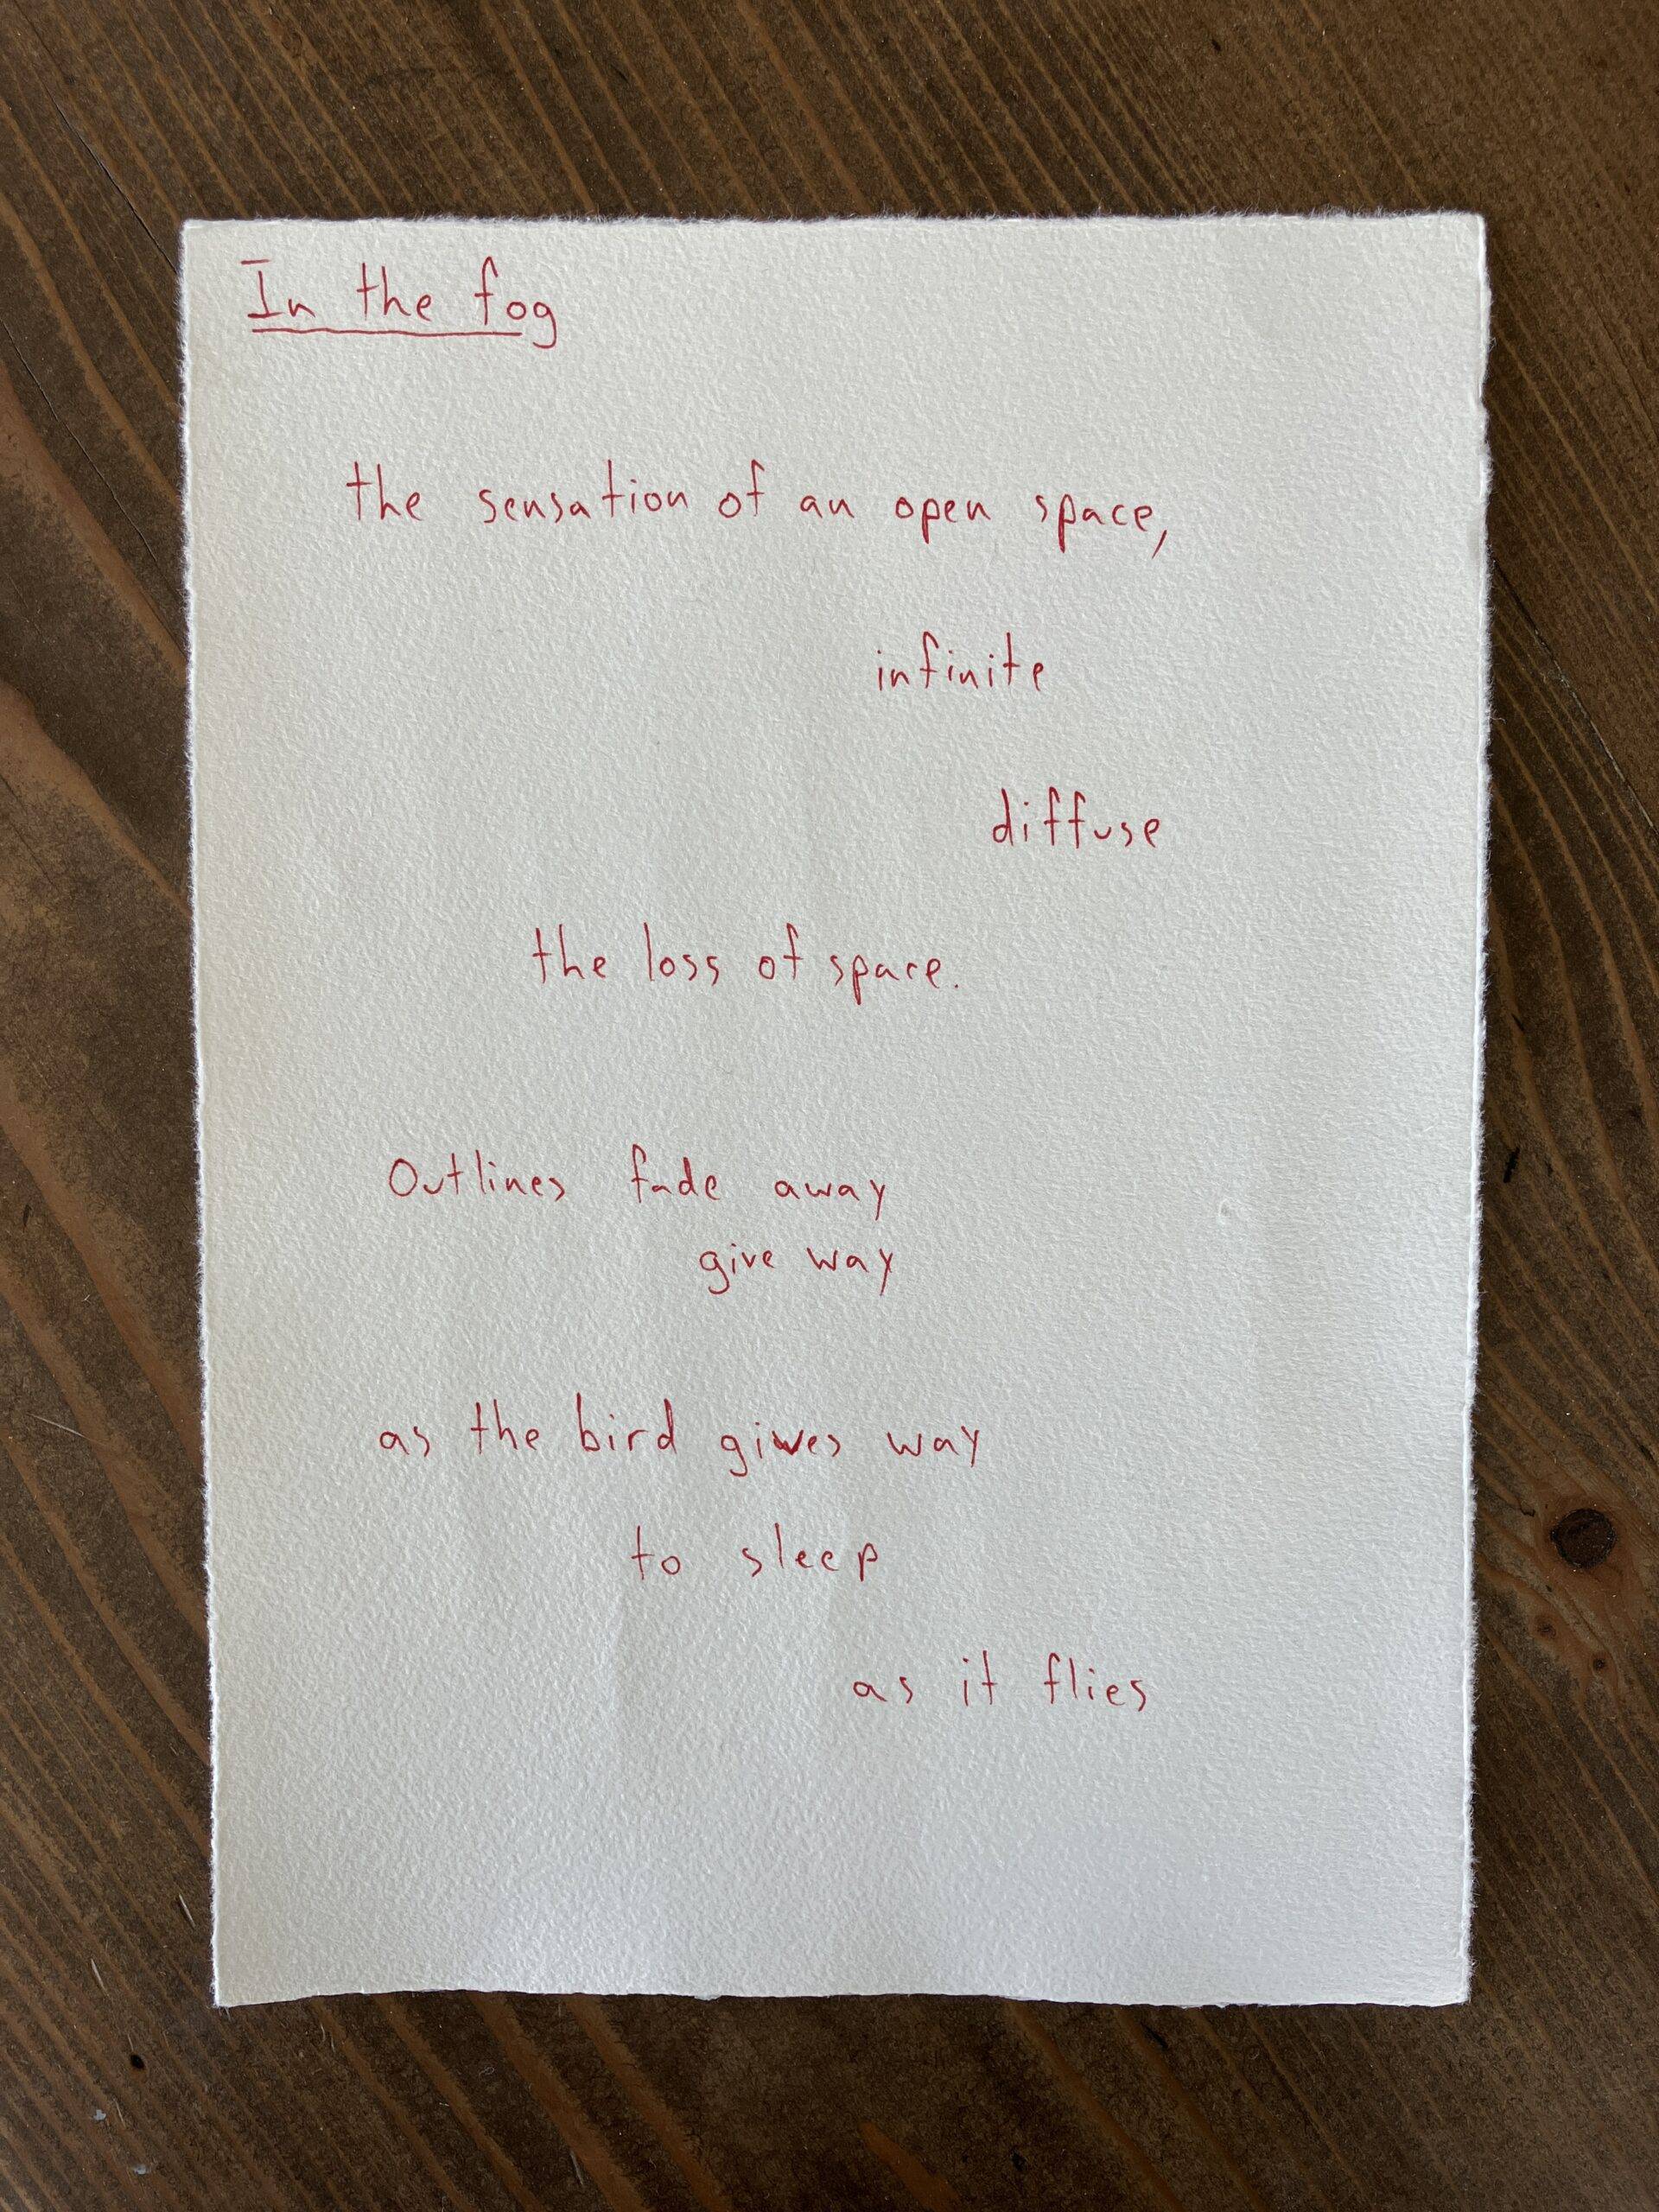 In the fog
the sensation of an open space,
infinite
diffuse
the loss of space.
Outlines fade away
give way
as the bird gives way
to sleep
as it flies